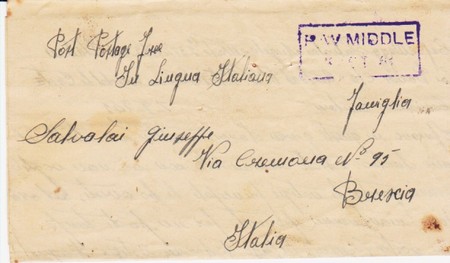 Post Postage Free
In Lingua Italiana
P.W MIDDLE
Famiglia
Salvalai Giuseppe
Via Cremona Nº 95
Brescia
Italia